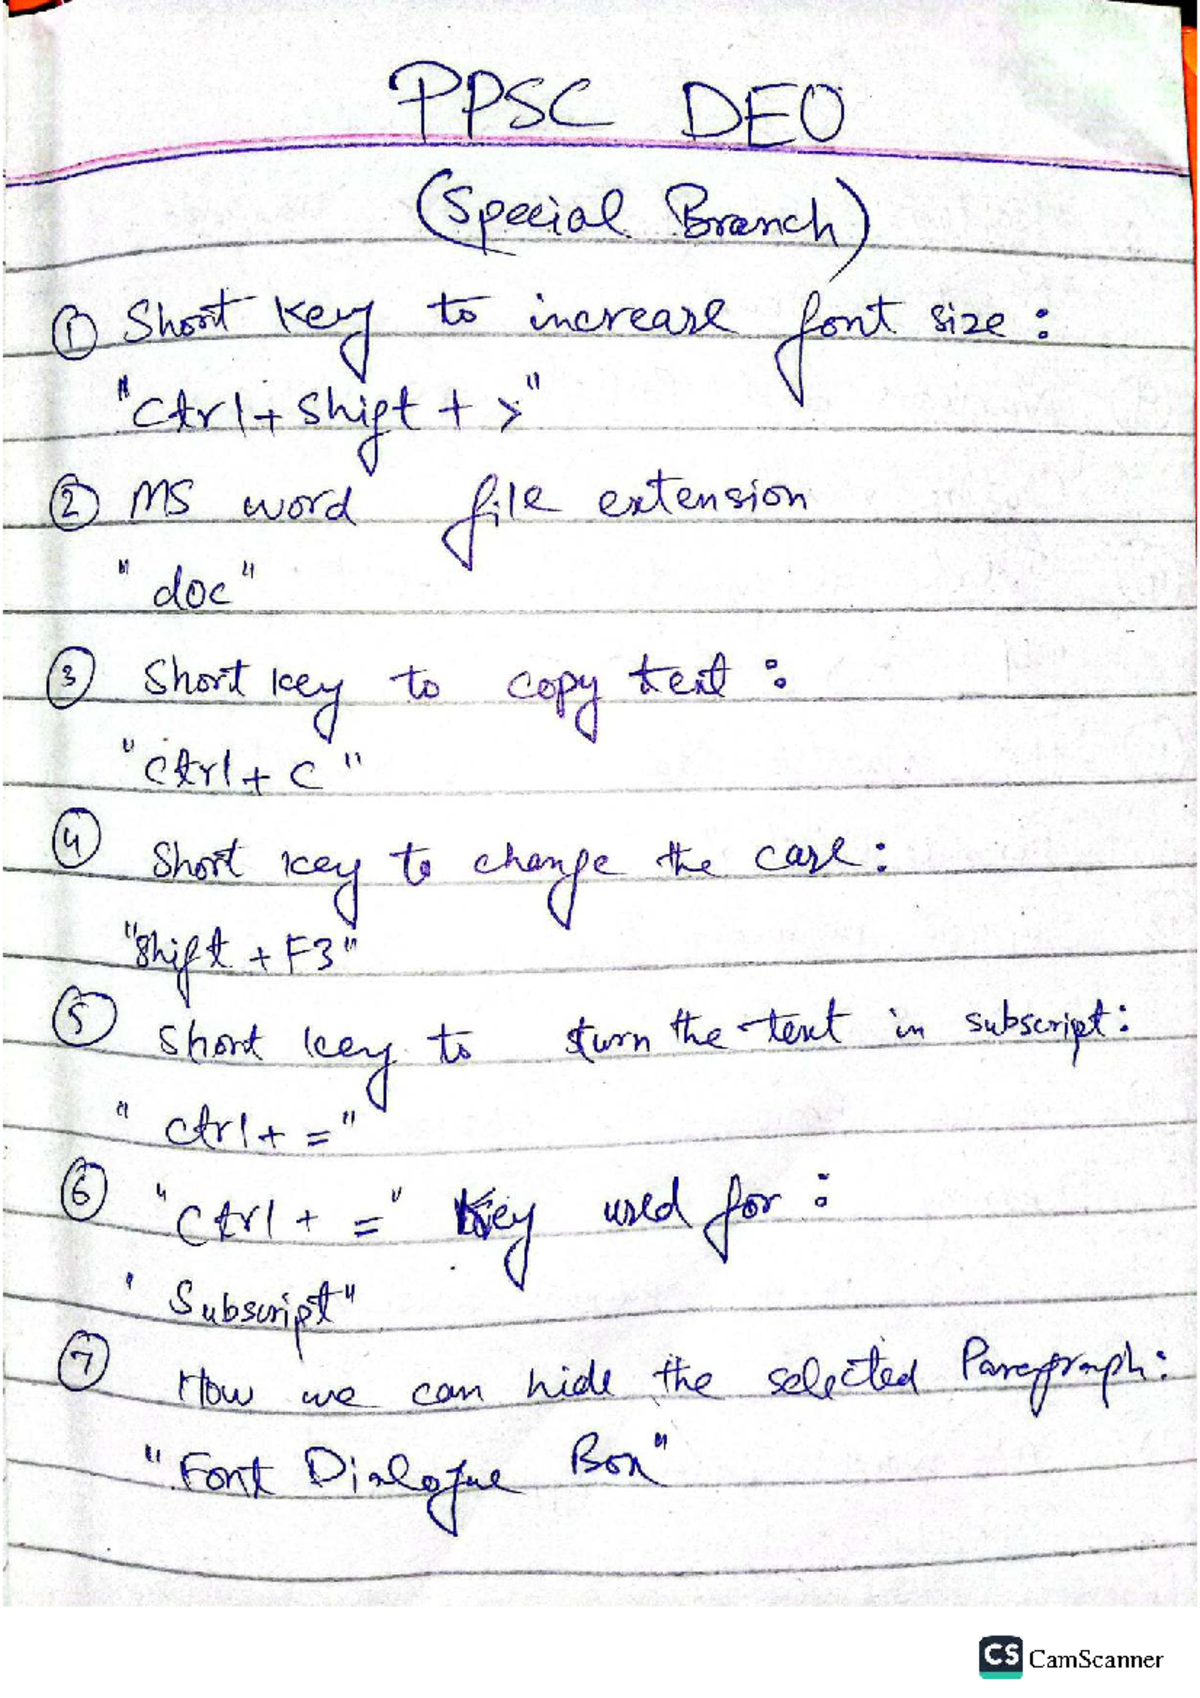 PPSC DEO
(Special Branch)
① Short Key to increase font size :
"Ctrl + Shift + >"
② MS word file extension
"doc"
③ Short key to copy text :
"Ctrl + C"
④ Short key to change the case :
"Shift + F3"
⑤ Short key to turn the text in subscript :
"Ctrl + ="
⑥ "Ctrl + =" Key used for :
'Subscript"
⑦ How we can hide the selected Paragraph :
"Font Dialogue Box"
CS CamScanner